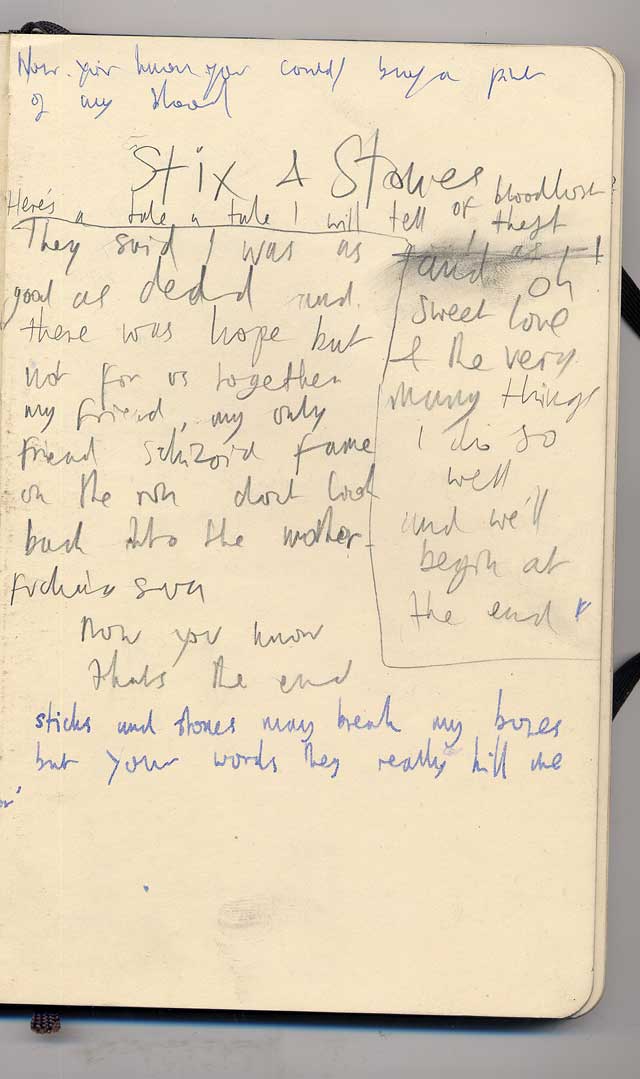 Now you know you could buy a pint
of my blood
Stix & Stones
Here's a tale a tale I will tell of bloodlust
theft
They said I was as
good as dead and
there was hope but
not for us together
my friend, my only
friend schizoid fame
on the run dont look
back into the mother-
fucking sun
Now you know
thats the end
and oh
sweet love
& the very
many things
I do so
well
and we'll
begin at
the end
sticks and stones may break my bones
but your words they really kill me